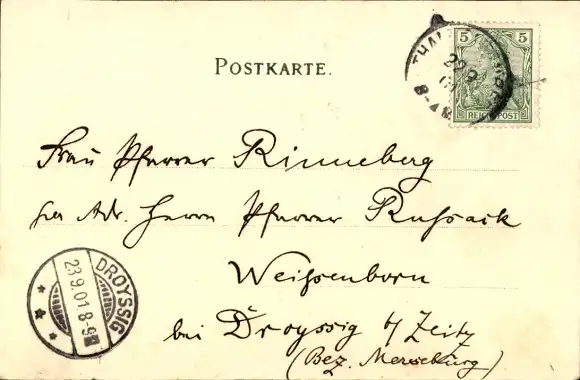 POSTKARTE.
5 5
REICHSPOST
THAL
8-9N
Frau Pfarrer Rinneberg
per Adr. Herrn Pfarrer Russack
Weissenborn
bei Droyssig b/ Zeitz
(Bez. Merseburg)
DROYSSIG
23.9.01 8-9